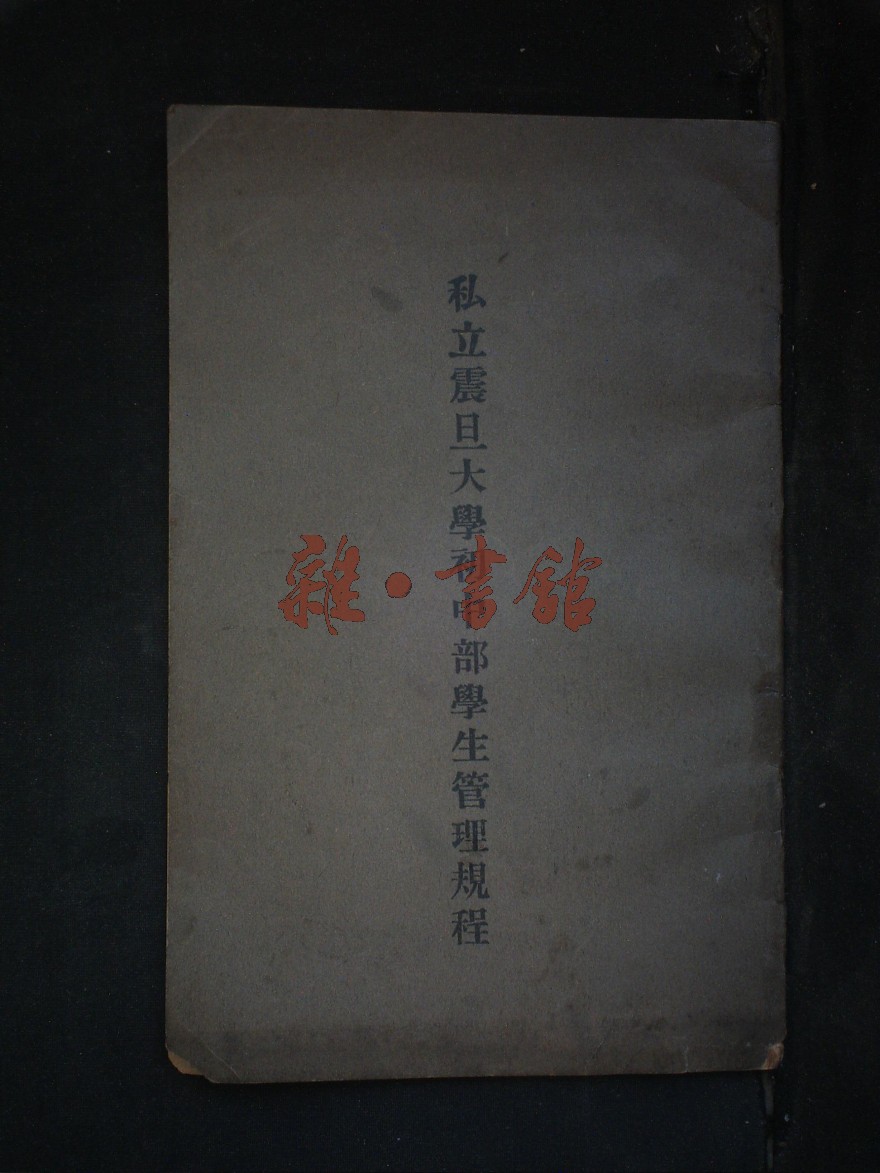 私立震旦大學初中部學生管理規程
雜·書館